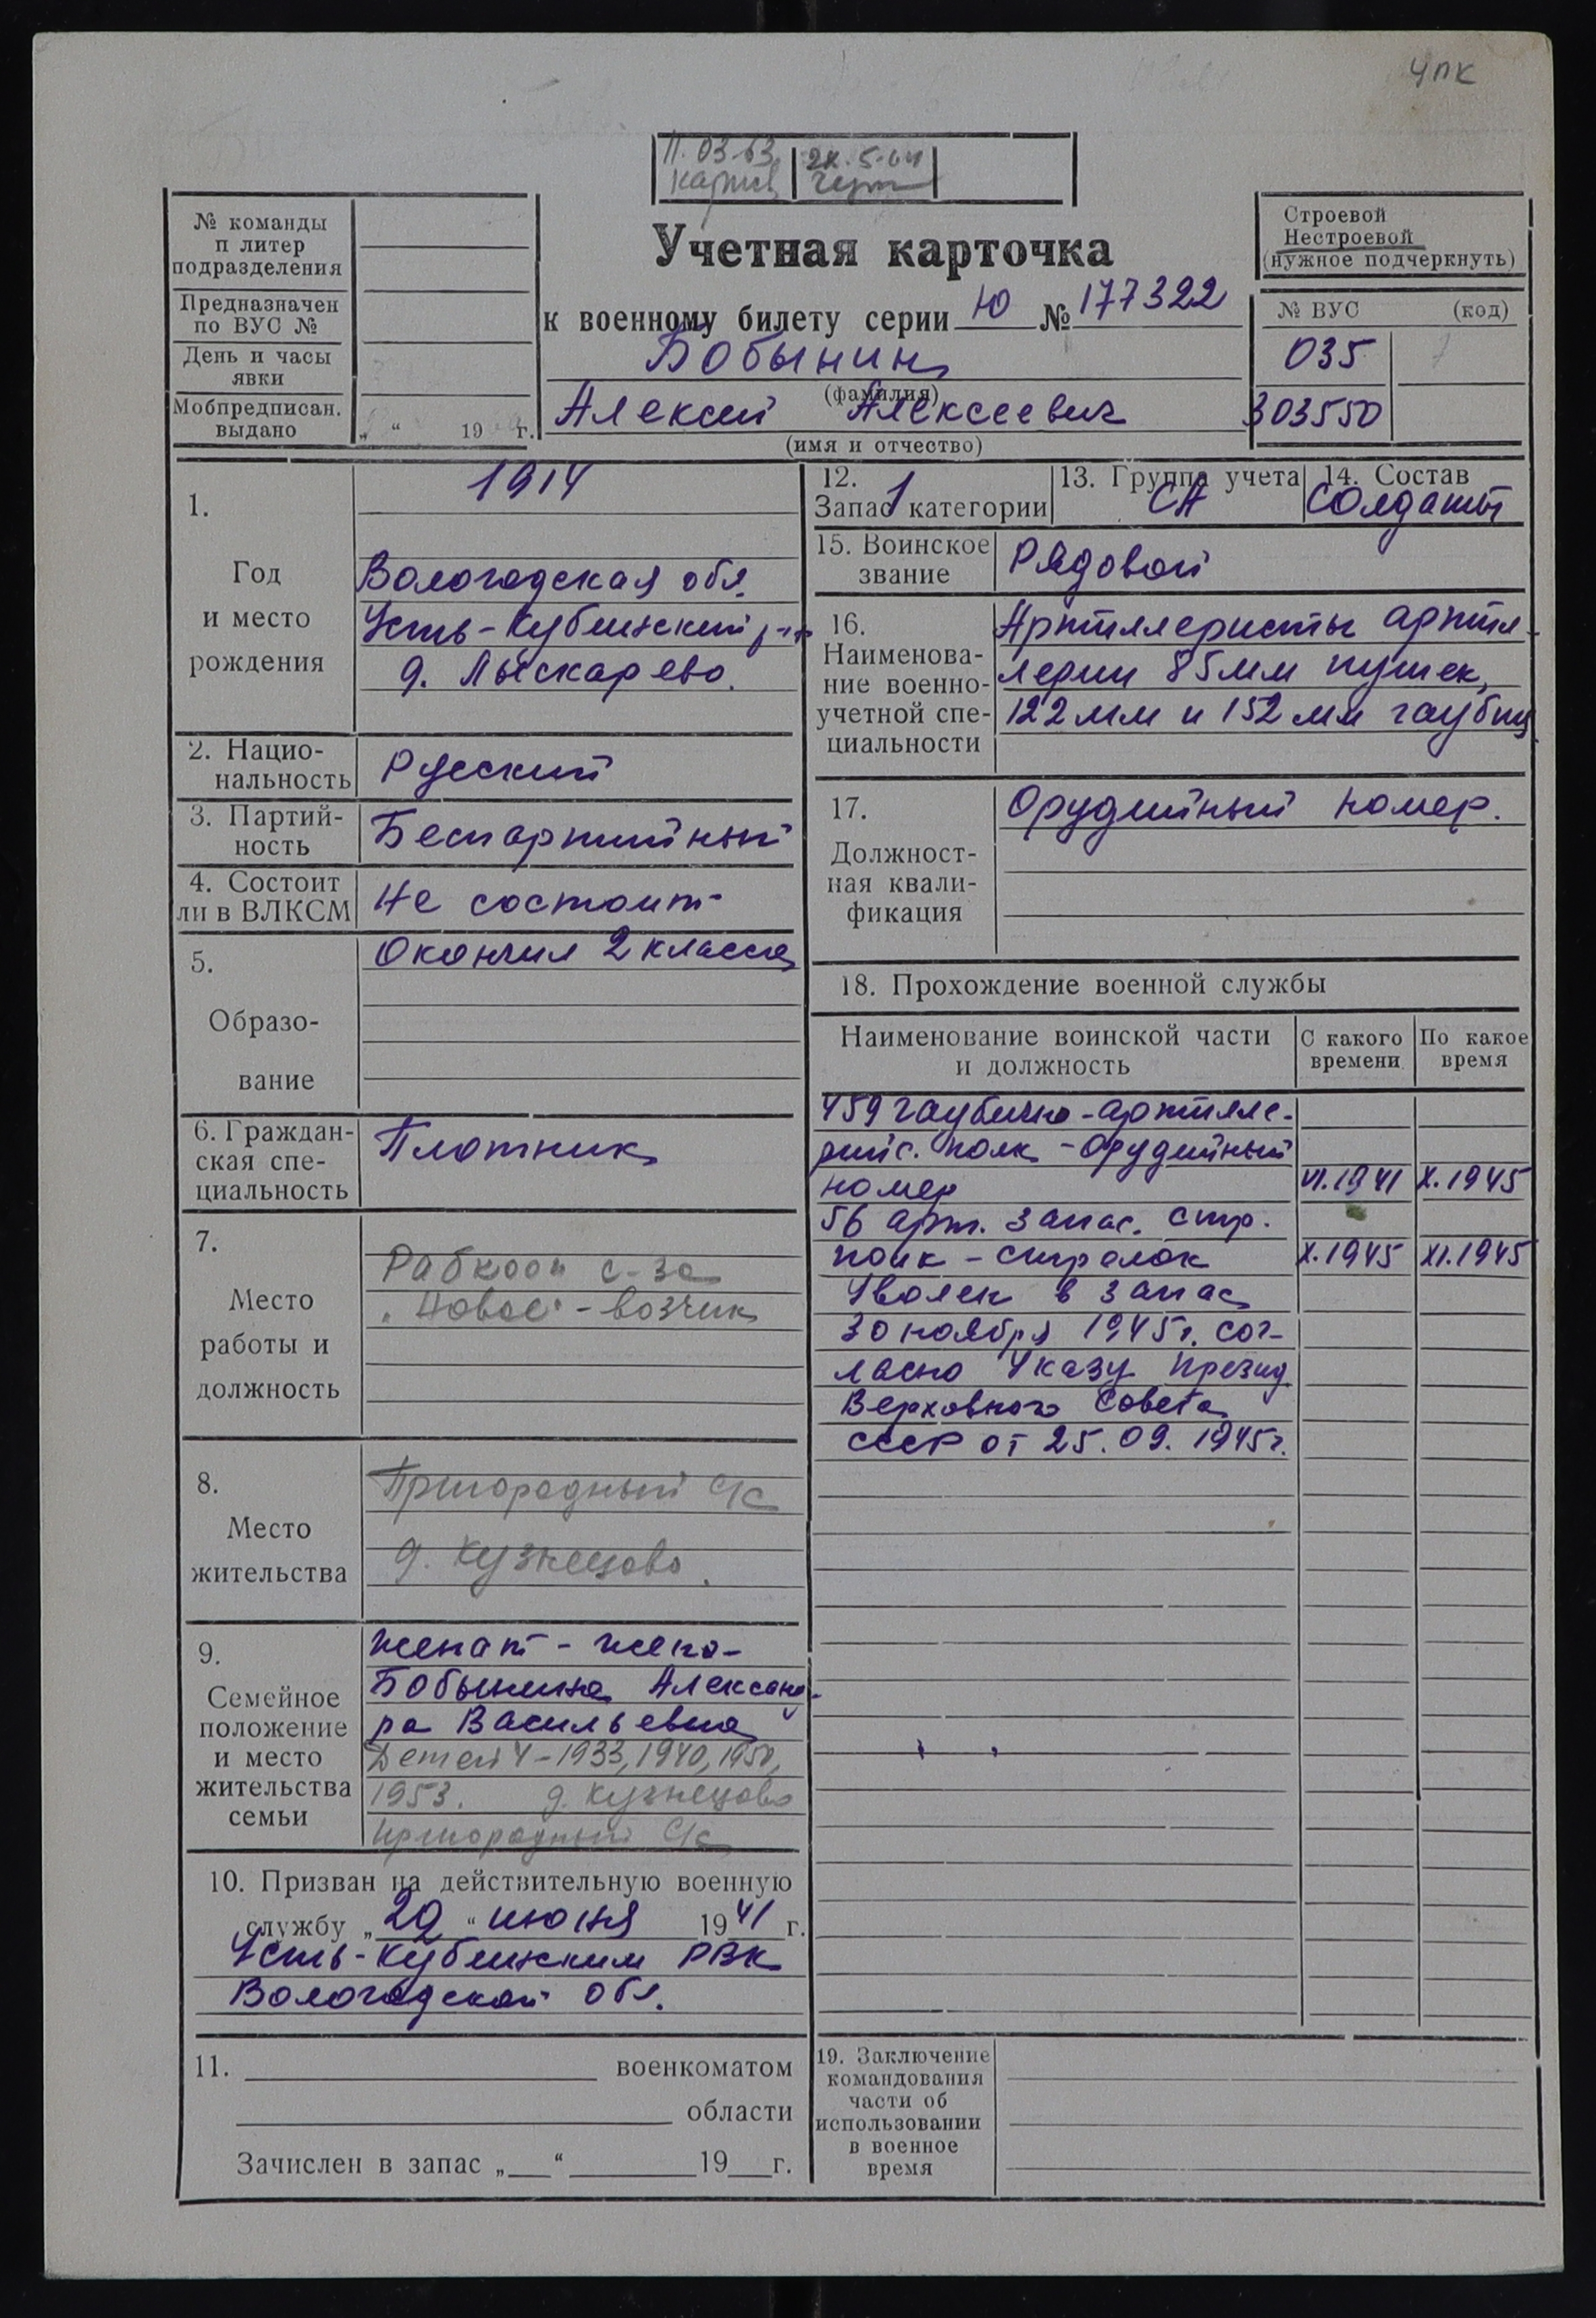 УПК
11.03.63
№ команды
п литер
подразделения
Предназначен
по ВУС №
День и часы
явки
Мобпредписан.
выдано
„ “ 19 г.
Учетная карточка
к военному билету серии Ю № 177322
Бобынин
(фамилия)
Алексей Алексеевич
(имя и отчество)
Строевой
Нестроевой
(нужное подчеркнуть)
№ ВУС (код)
035
303550
1.
Год
и место
рождения
1914
Вологодская обл.
Усть-Кубинский р-н
д. Лыскарево.
2. Нацио-
нальность
Русский
3. Партий-
ность
Беспартийный
4. Состоит
ли в ВЛКСМ
Не состоит
5.
Образо-
вание
Окончил 2 класса
6. Граждан-
ская спе-
циальность
Плотник
7.
Место
работы и
должность
Рабкооп с-за
„Новое“ - возчик
8.
Место
жительства
Пригородный с/с
д. Кузнецово.
9.
Семейное
положение
и место
жительства
семьи
женат - жена -
Бобынина Александ-
ра Васильевна
Детей 4 - 1933, 1940, 1950,
1953. д. Кузнецово
Пригородный с/с
10. Призван на действительную военную
службу „29“ июня 1941 г.
Усть-Кубинским РВК
Вологодской обл.
11. военкоматом
области
Зачислен в запас „ “ 19 г.
12.
Запас 1 категории
13. Группа учета
СА
14. Состав
Солдаты
15. Воинское
звание
Рядовой
16.
Наименова-
ние военно-
учетной спе-
циальности
Артиллеристы артил-
лерии 85мм пушек,
122 мм и 152 мм гаубиц.
17.
Должност-
ная квали-
фикация
Орудийный номер.
18. Прохождение военной службы
Наименование воинской части
и должность
С какого
времени
По какое
время
459 гаубично-артилле-
рийс. полк - орудийный
номер VI.1941 X.1945
56 арт. запас. стр.
полк - стрелок X.1945 XI.1945
Уволен в запас
30 ноября 1945г. сог-
ласно Указу Презид
Верховного Совета
СССР от 25.09.1945г.
19. Заключение
командования
части об
использовании
в военное
время